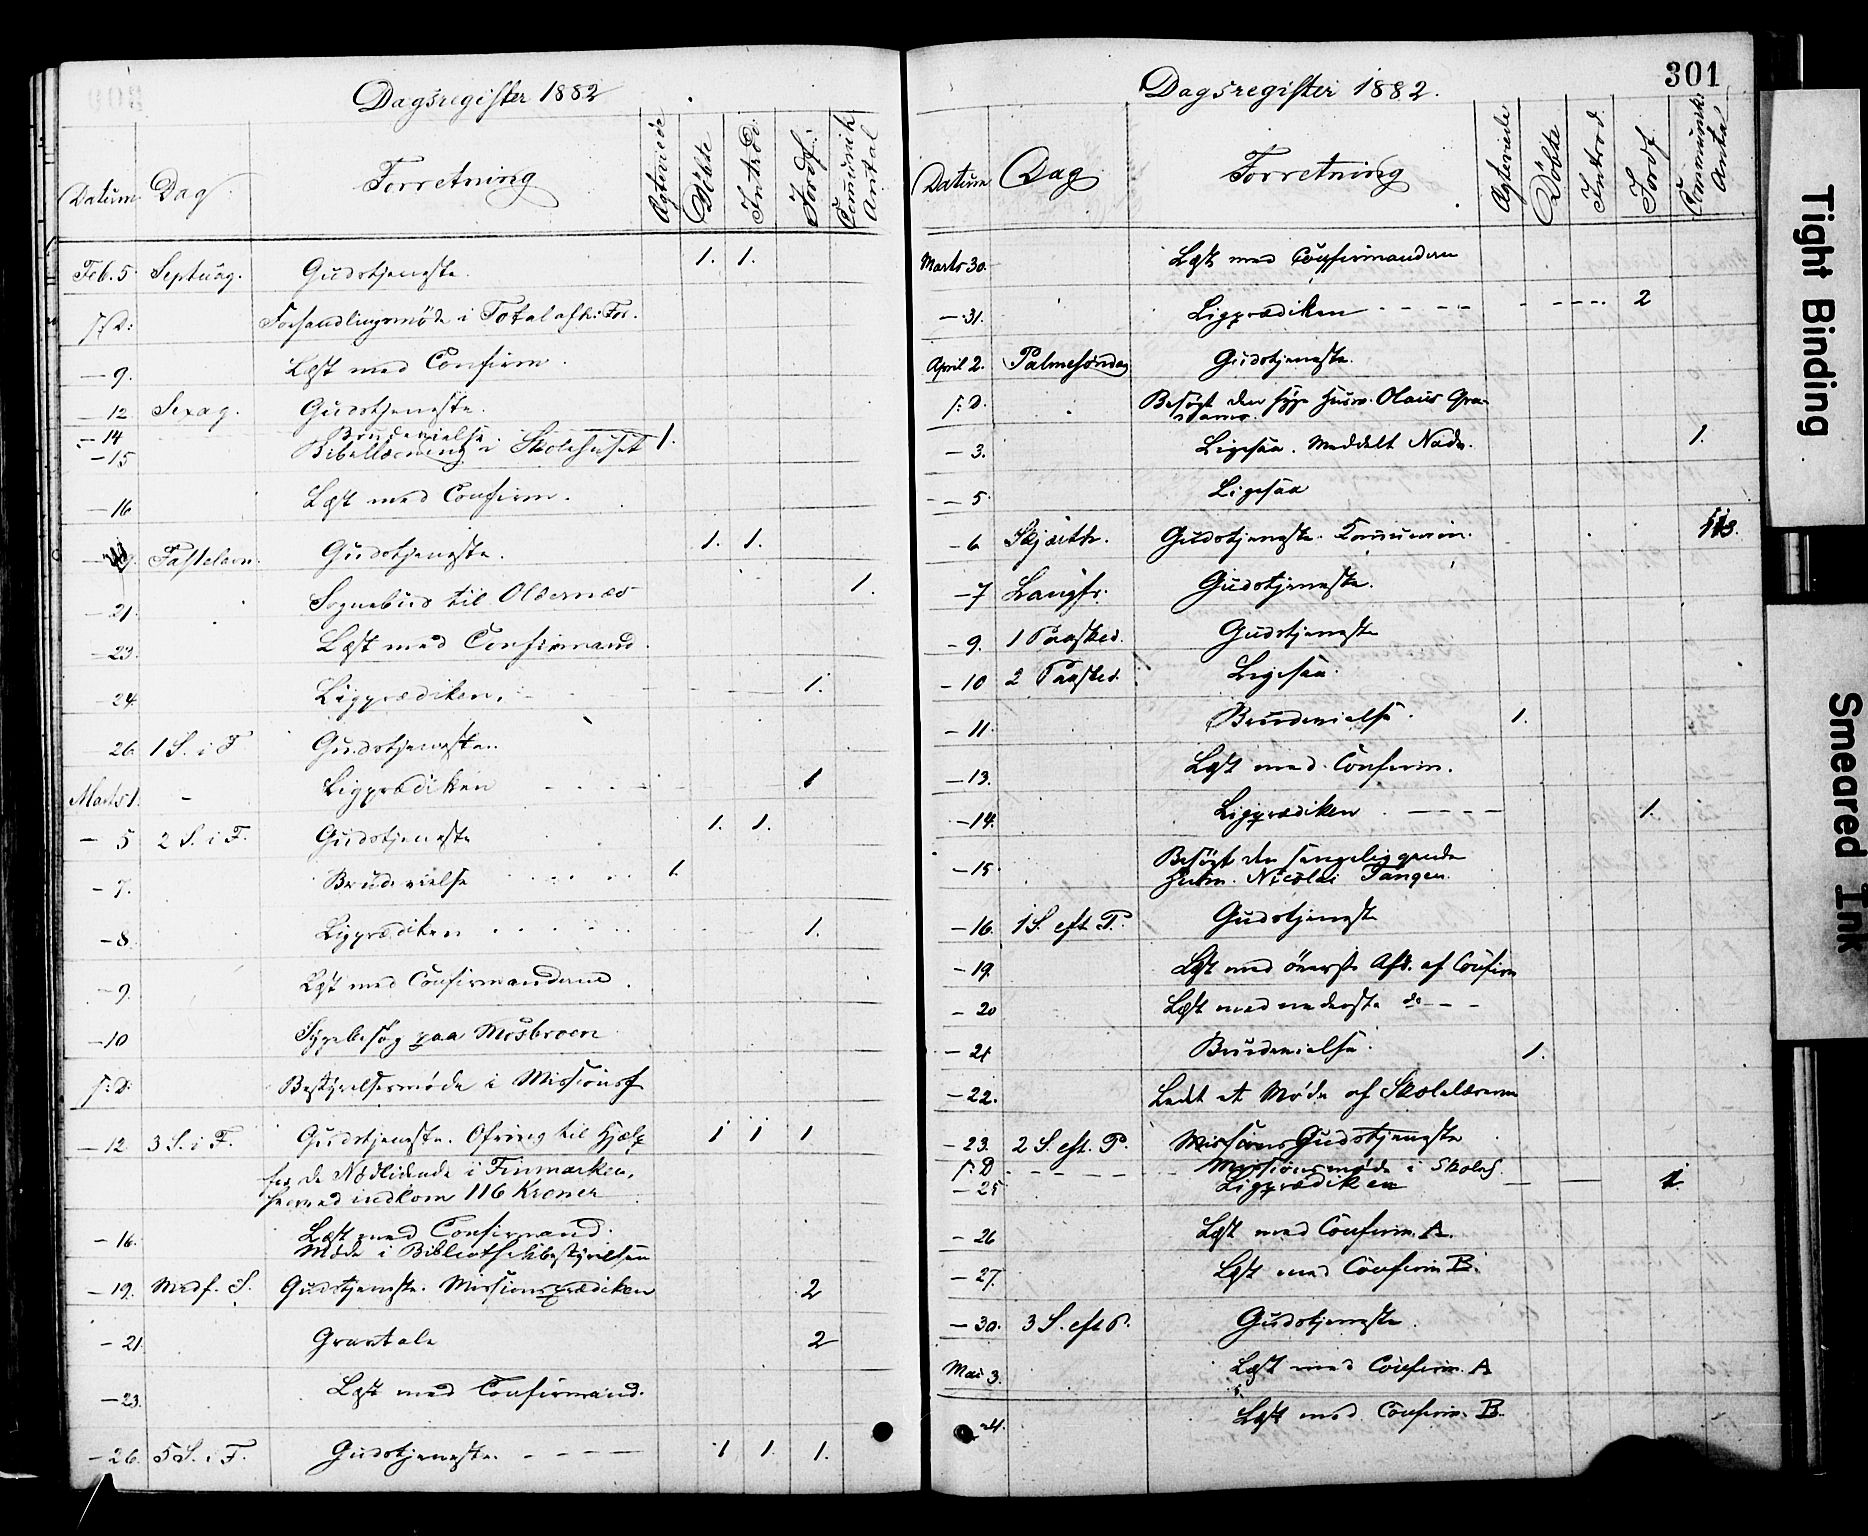 Dagsregister 1882
Datum Dag Forretning Ægteviede Døbte Introd. Jordf. Communik Antal
Feb. 5 Septuag. Gudstjeneste. 1. 1.
S. D: Forhandlingsmøde i Totalafh: For.
— 9. Læst med Confirm.
— 12 Sexag. Gudstjeneste.
— 14 Brudevielse 1.
— 15 Bibellæsning i Skolehuset
— 16 Læst med Confirm.
— 19. Fastelavn. Gudstjeneste. 1. 1.
— 21. Sognebud til Oldernæs 1.
— 23. Læst med Confirmand.
— 24 Ligprædiken. 1.
— 26. 1 S. i F Gudstjeneste.
Marts 1. Ligprædiken 1
— 5 2 S. i F. Gudstjeneste 1. 1.
— 7. Brudevielse 1.
— 8. Ligprædiken 1.
— 9. Læst med Confirmanderne
— 10 Sygebesøg paa Mosbroen
S: D: Bestyrelsesmøde i Missionsf
— 12 3 S. i F. Gudstjeneste. Ofring til Hjælp 1 1 1
for de Nødlidende i Finmarken,
hvorved indkom 116 Kroner
— 16. Læst med Confirmand.
Møde i Bibliothekbestyrelsen
— 19. Midf. S. Gudstjeneste. Missionsprædiken 2
— 21. Gravtale 2
— 23. Læst med Confirmand.
— 26. 5 S. i F. Gudstjeneste. 1 1. 1.
301
Dagsregister 1882.
Datum Dag Forretning Ægteviede Døbte Introd. Jordf. Communik. Antal
Marts 30. Læst med Confirmanderne
— 31. Ligprædiken 2
April 2. Palmesøndag Gudstjeneste.
S: D. Besøgt den syge Husm. Olaus
— 3. Ligesaa. Meddelt Nadv. 1.
— 5 Ligesaa
— 6 Skjærth. Gudstjeneste. Communion. 113.
— 7 Langfr. Gudstjeneste.
— 9. 1 Paasked. Gudstjeneste
— 10 2 Paasked. Ligesaa.
— 11 Brudevielse. 1.
— 13. Læst med Confirm.
— 14. Ligprædiken 1.
— 15 Besøgt den sengeliggende
Husm. Nicolai Tangen.
— 16. 1 S. eft P. Gudstjeneste
— 19. Læst med øverste Afd. af Confirm
— 20 Læst med nederste do — —
— 21 Brudevielse. 1.
— 22. Ledet et Møde af Skolelærerne
— 23. 2 S. eft. P. Missions Gudstjeneste
S. D Missionsmøde i Skoleh.
— 25 Ligprædiken 1.
— 26 Læst med Confirm. A.
— 27. Læst med Confirm B.
— 30. 3 S. eft P. Gudstjeneste.
Mai 3. Læst med Confirm. A
— 4. Læst med Confirm. B.
Tight Binding
Smeared Ink